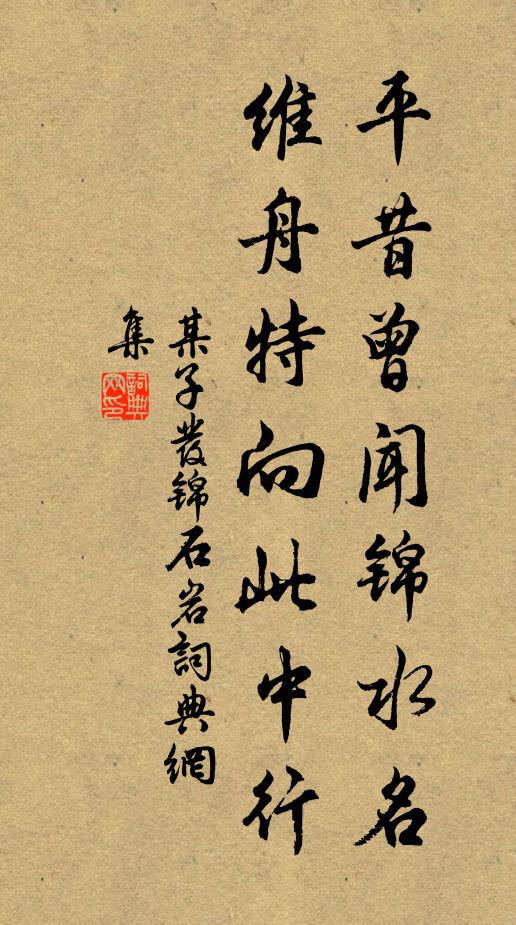 平昔曾闻锦水名
维舟特向此中行
某子发锦石岩詞典網
集
詞典網印